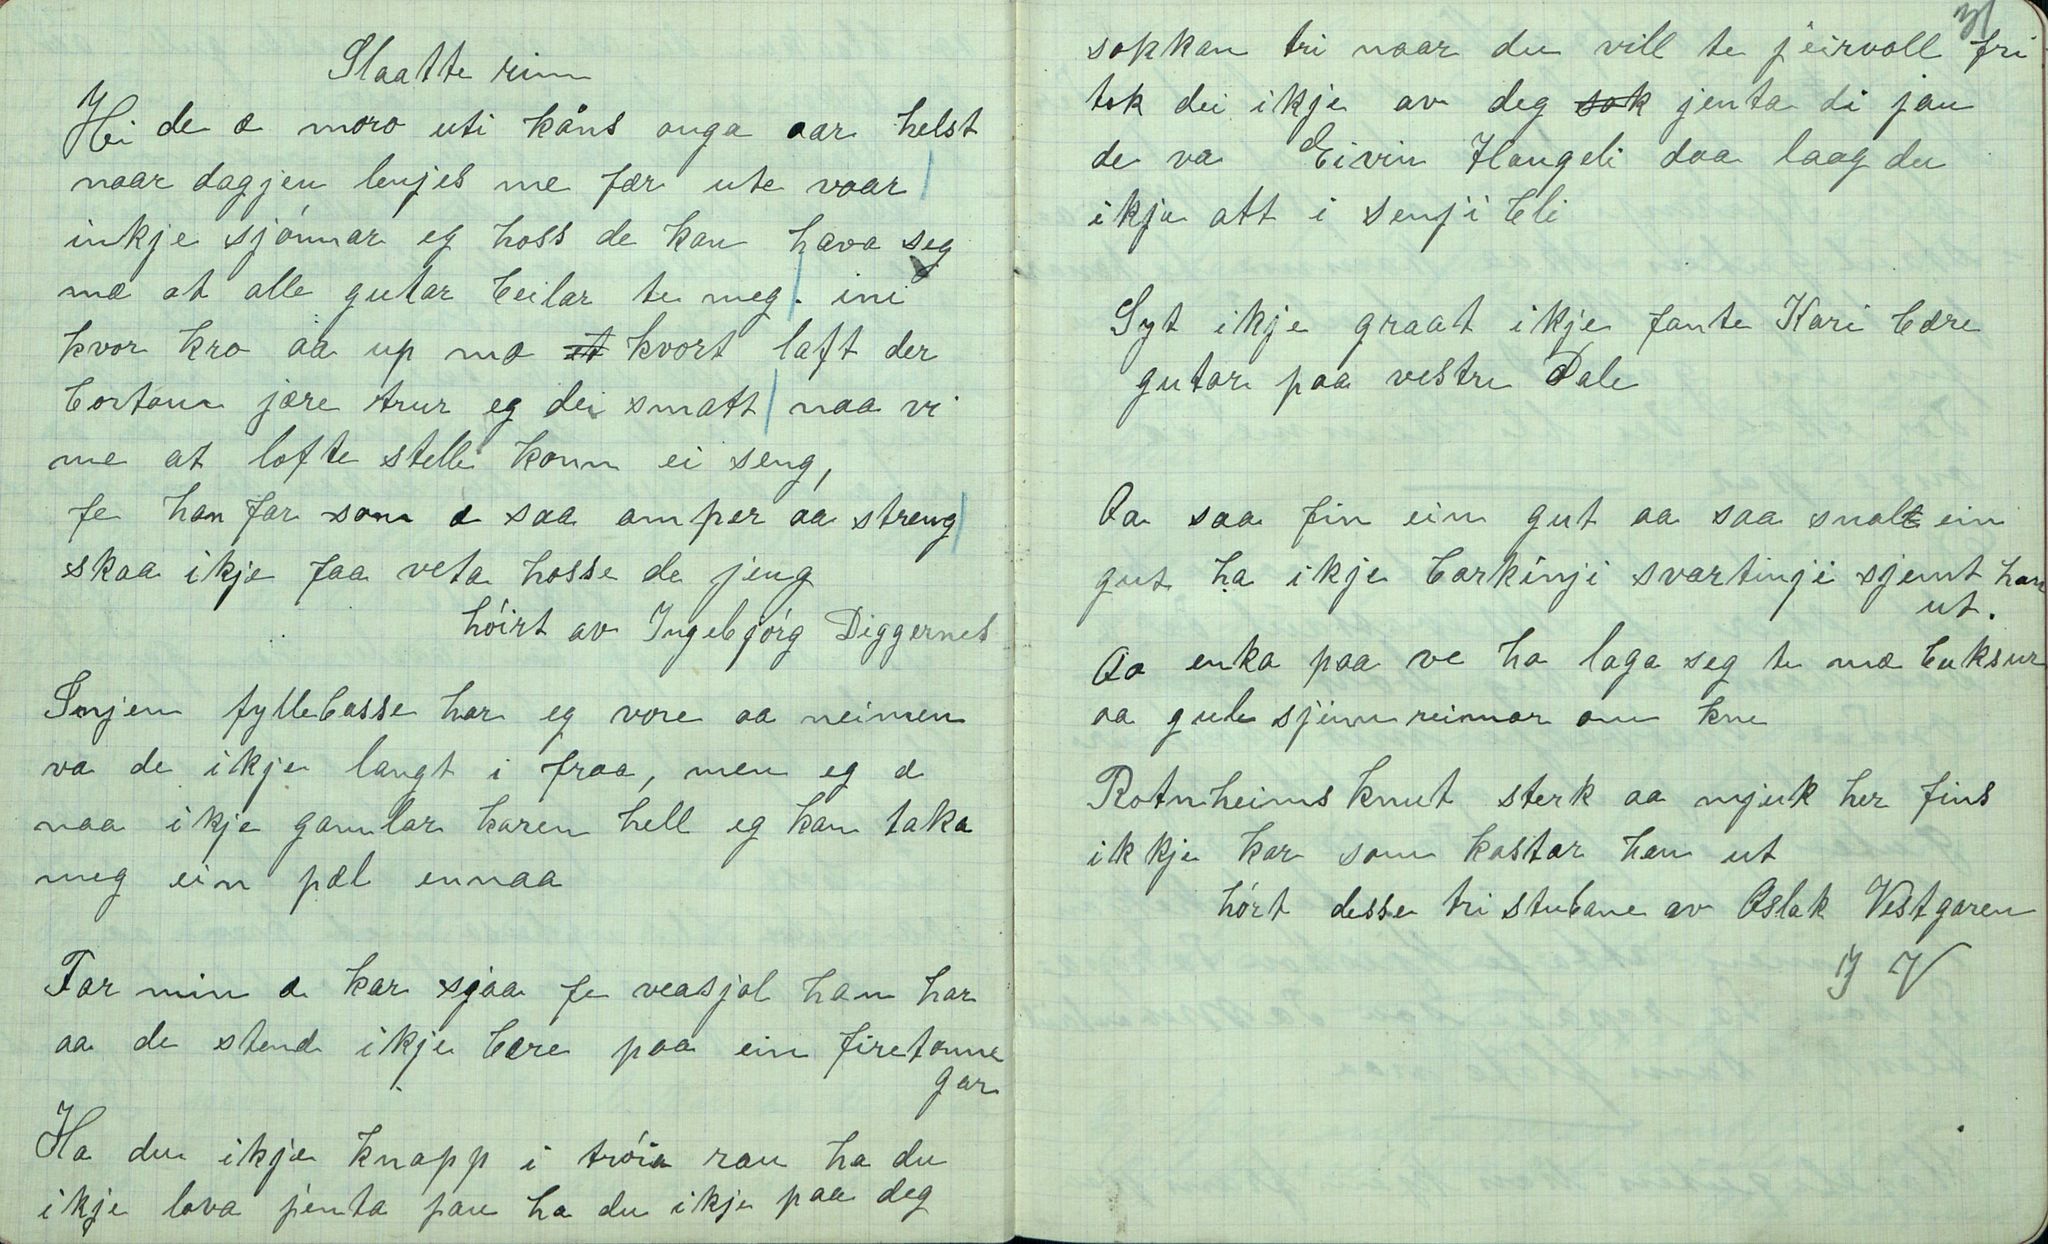 Slaatte rim
Hei de æ moro uti kåns onga aar helst
naar dagjen lenjes me fær ute vaar
inkje sjónnar eg hoss de kan hava seg
mæ at alle gutar beilar te meg. ini
kvor kro aa up mæ et kvort laft der
bortanr jære trur eg dei smatt naa vi
me at lofte stelle konn ei seng,
fe han far som æ saa amper aa streng
skaa ikje faa veta hosse de jeng
hóirt av Ingebjórg Diggernes
Injen fyllebasse har eg vore aa neimen
va de ikje langt i fraa, men eg æ
naa ikje gamlar karen hell eg kan taka
meg ein pæl ennaa
Far min æ kar sjaa fe veasjol han har
aa de stend ikje bere paa ein firetonne
gar
Ha du ikje knapp i tróia rau ha du
ikje lova jenta pau ha du ikje paa deg
31
sokkan tri naar du vill te jeirvoll fri
tok dei ikje av deg sok jenta di jau
de va Eivin Haugeli daa laag du
ikje att i senji Eli
Syt ikje graat ikje fante Kari bære
gutar paa vestre Dale
Aa saa fin ein gut aa saa snalt ein
gut ha ikje barkinji svartinji sjemt han
ut.
Aa enka paa ve ha laga seg te mæ buksur
aa gule sjinnreimar om kne
Rotnheims Knut sterk aa mjuk her fins
ikkje kar som kastar han ut
hórt desse tri stubane av Aslak Vestgaren
I V